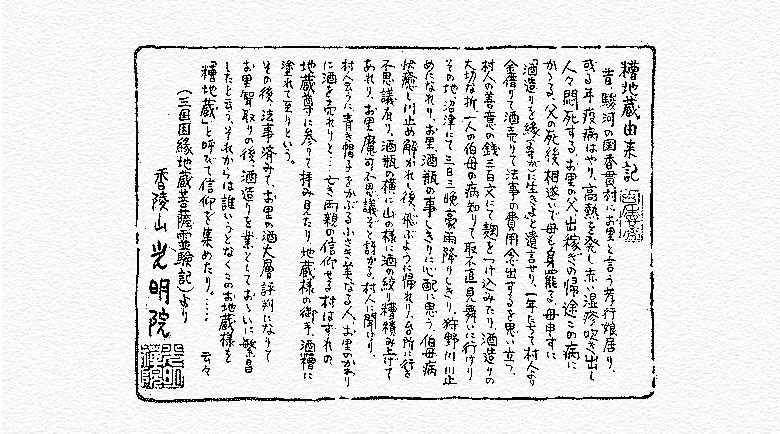 糟地蔵由来記
昔、駿河の国香貫村にお里と言う孝行娘居り、
或る年、疫病はやり、高熱を発し赤い湿疹吹き出し
人々悶死する。お里の父、出稼ぎの帰途この病に
かゝる。父の死後、相逐いで母も身罷る。母申すに
「酒造りを縁とすがに生きよ」と遺言せり。一年占って村人より
金借りて酒売りて法事の費用念出するを思い立つ。
村人の善意の銭三百文にて麹をつけ込みたり。酒造りの
大切な折、一人の伯母の病知りて取る不直見舞いに行けり
その地、沼津にて三日三晩豪雨降りしきり、狩野川川止
めになれり。お里、酒瓶の事しきりに心配に思う。伯母病
状癒し川止め解かれし後、飛ぶように帰れり。台所に行き
不思議がり。酒瓶の横に山の様に酒の絞り糟積み上げて
あれり。お里、摩訶不思議ぞと訝かる。村人に聞けり。
村人云うに、青き帽子をかぶる小さき美なる人、お里のかわり
に酒を売れりと…亡き両親の信仰せる村はずれの、
地蔵尊に参りて拝み見たり、地蔵様の御手、酒糟に
塗れて至りという。
その後、法事済みて、お里の酒大層評判になりて
お里聟取りの後、酒造りを業としておゝいに繁昌
したと云う。それからは誰いうとなくこのお地蔵様を
「糟地蔵」と呼びて信仰を集めたり。…… 云々
(三国因縁地蔵菩薩霊験記)より
香陵山 光明院